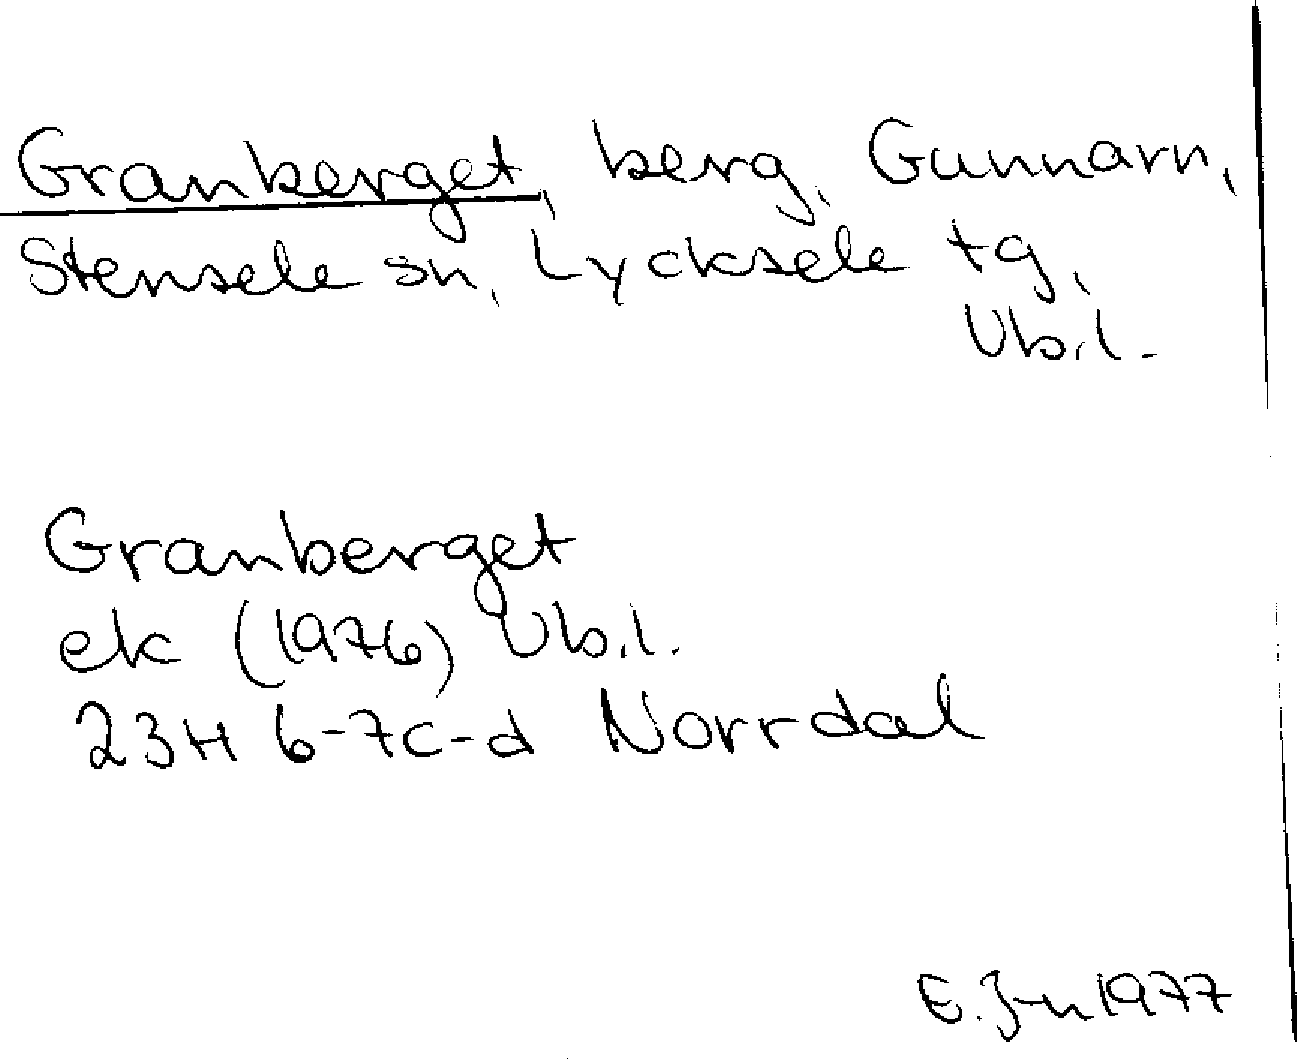 Granberget, berg, Gunnarn,
Stensele sn, Lycksele tg,
Vb.l.
Granberget
ek (1976) Vb.l.
23H 6-7c-d Norrdal
E. J-n 1977